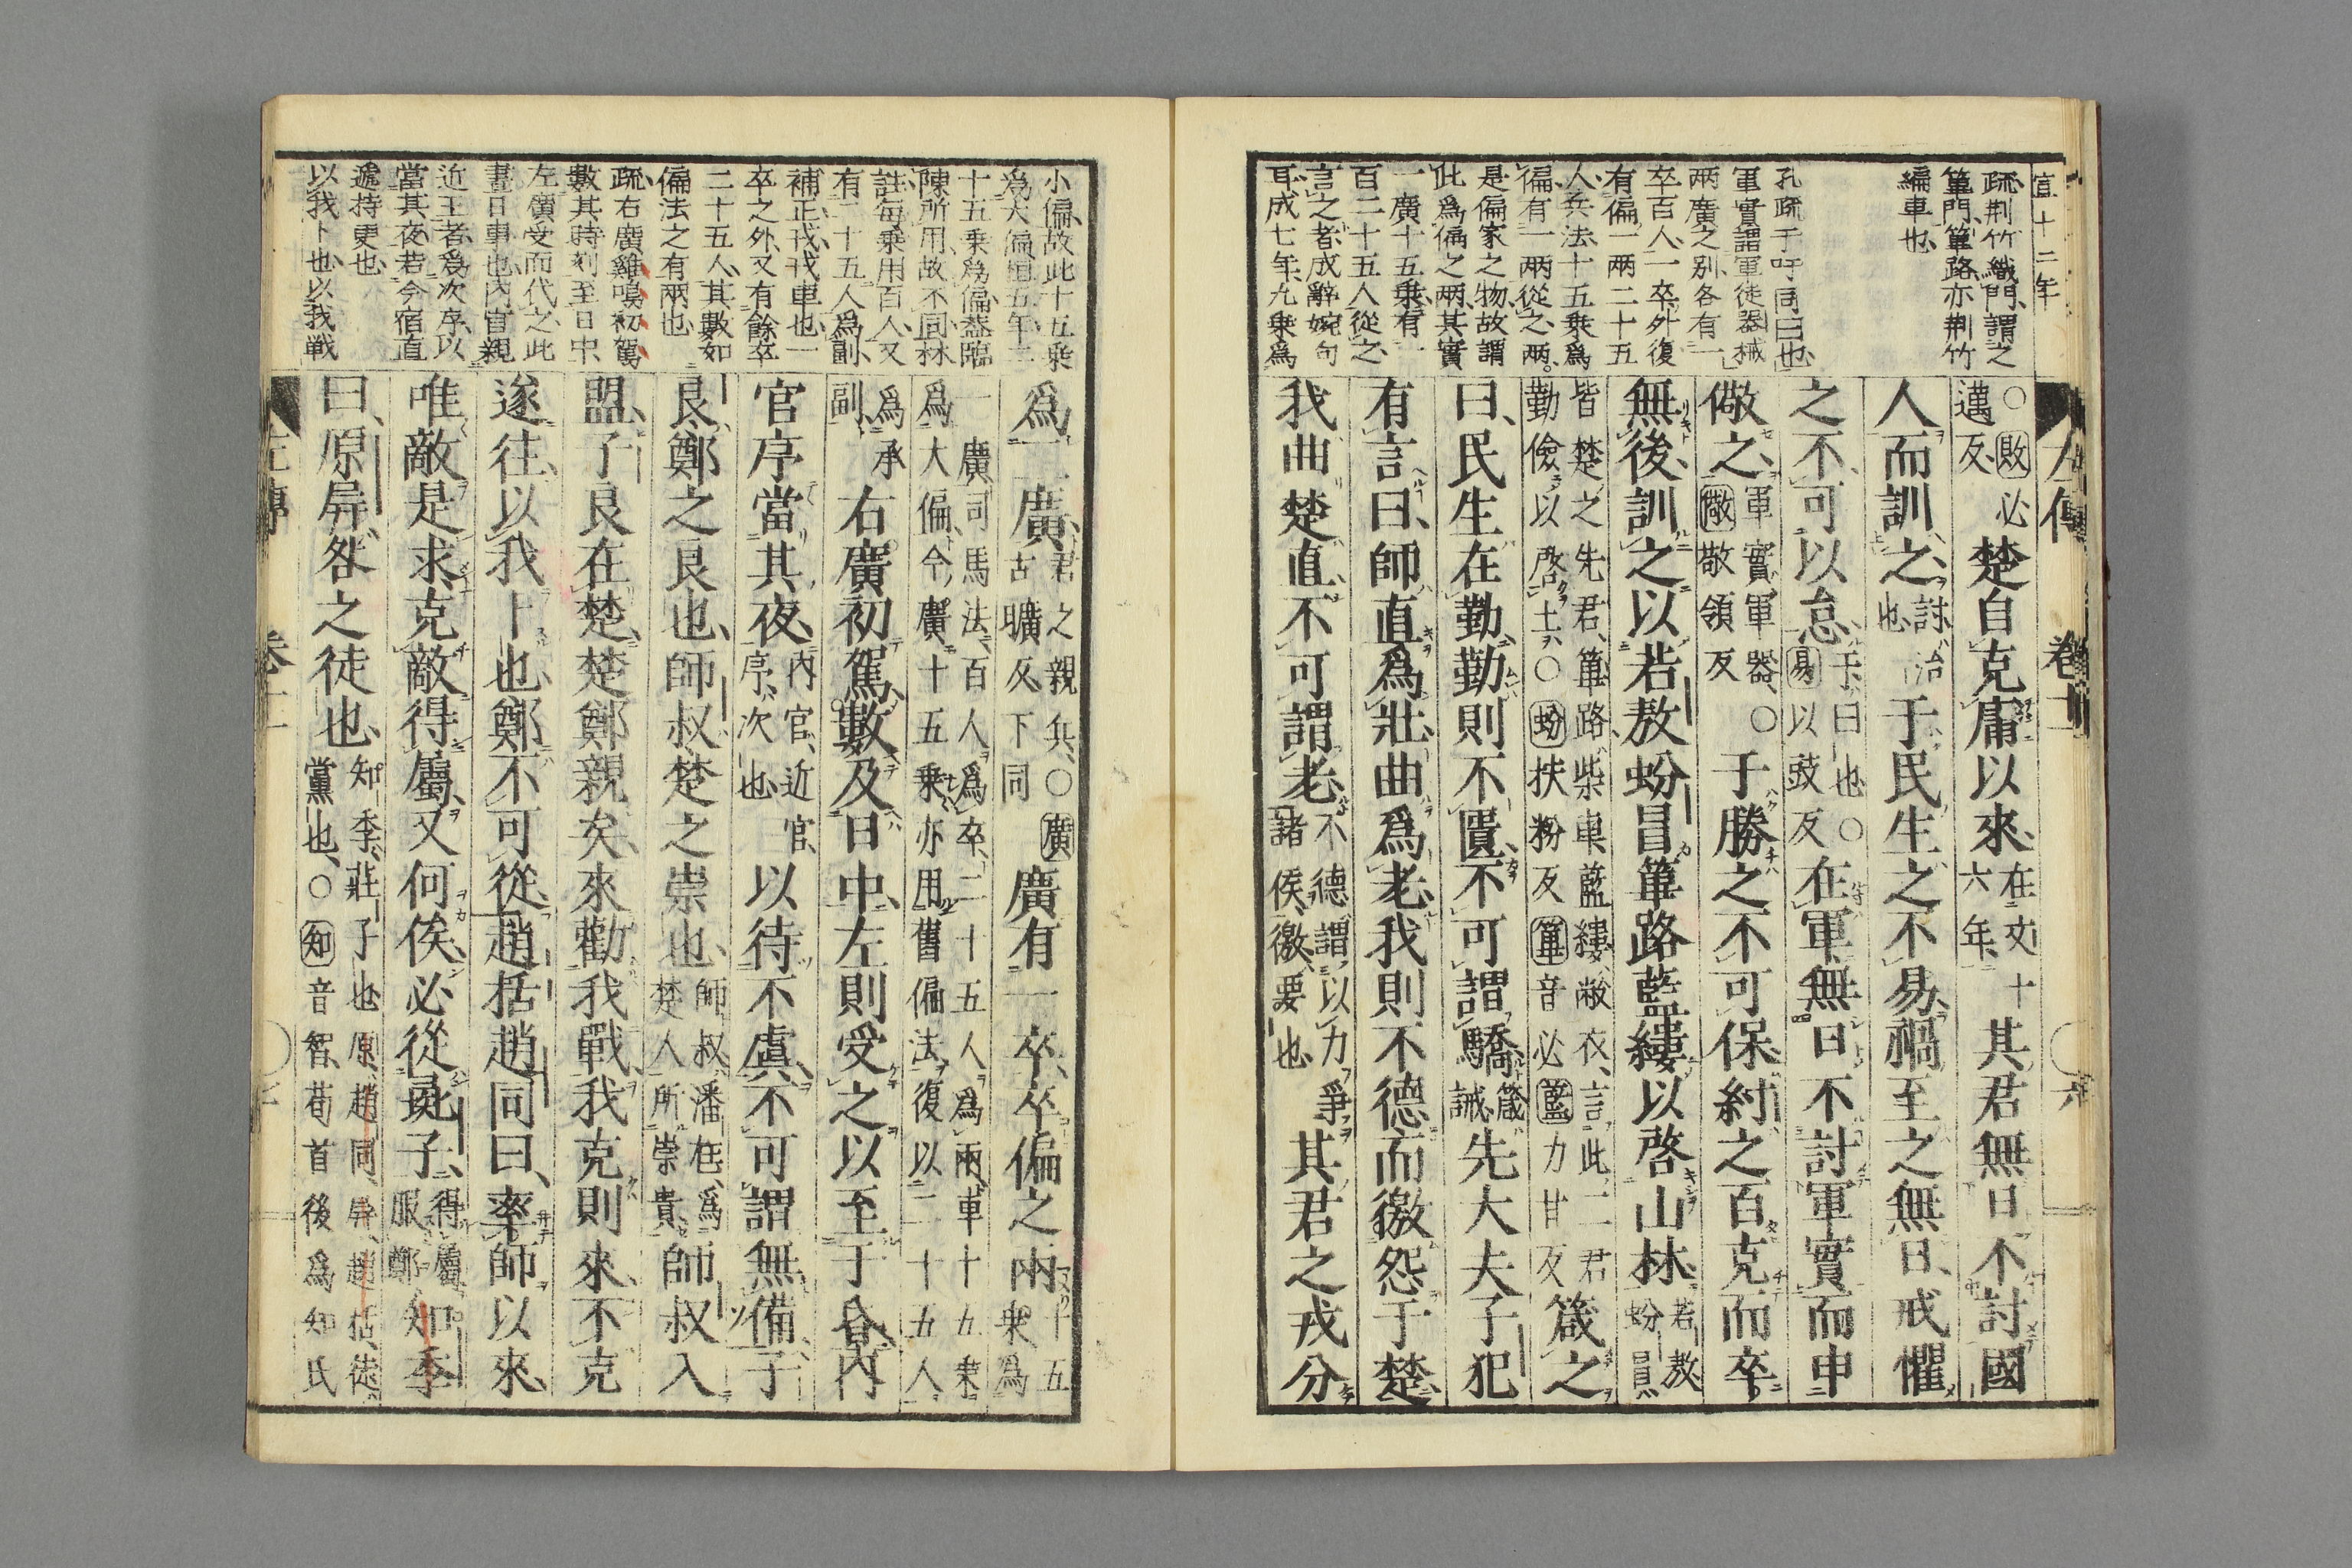 宣十二年
疏荆竹織門謂之
篳門篳路亦荆竹
編車也
孔疏于吁同曰也
軍實謂軍徒器械
兩廣之别各有一
卒百人一卒外復
有偏一兩二十五
人兵法十五乘爲
偏有一兩從之兩
是偏家之物故謂
此爲偏之兩其實
一廣十五乘有一
百二十五人從之
言之者成辭婉句
耳成七年九乘爲
左傳 卷十一 六
○敗必邁反楚自克庸以來在文十六年其君無日不討國
人而訓之討治也于民生之不易禍至之無日戒懼
之不可以怠于曰也○易以豉反在軍無日不討軍實而申
儆之軍實軍器○儆敬領反于勝之不可保紂之百克而卒
無後訓之以若敖蚡冒篳路藍縷以啓山林若敖蚡冒
皆楚之先君篳路柴車藍縷敝衣言此二君勤儉以啓土○蚡扶粉反篳音必藍力甘反箴之
曰民生在勤勤則不匱不可謂驕箴誡先大夫子犯
有言曰師直爲壯曲爲老我則不德而徼怨于楚
我曲楚直不可謂老不德謂以力爭諸侯徼要也其君之戎分
小偏故此十五乘
爲大偏恒五年三
十五乘爲偏蓋臨
陳所用故不同林
註每乘用百人又
有二十五人爲副
補正戎戎車也一
卒之外又有餘卒
二十五人其數如
偏法之有兩也
疏右廣雞鳴初駕
數其時刻至日中
左廣受而代之此
晝日事也内官親
近王者爲次序以
當其夜若今宿直
遞持更也
以我卜也以我戰
爲二廣君之親兵○廣古曠反下同廣有一卒卒偏之兩十五乘爲
一廣司馬法百人爲卒二十五人爲兩車十五乘爲大偏今廣十五乘亦用舊偏法復以二十五人
爲承副右廣初駕數及日中左則受之以至于昏内
官序當其夜内官近官序次也以待不虞不可謂無備子
良鄭之良也師叔楚之崇也師叔潘尫爲楚人所崇貴師叔入
盟子良在楚楚鄭親矣來勸我戰我克則來不克
遂往以我卜也鄭不可從趙括趙同曰率師以來
唯敵是求克敵得屬又何俟必從彘子得屬服鄭知季
曰原屏咎之徒也知季莊子也原趙同屏趙括徒黨也○知音智荀首後爲知氏
左傳 卷十一